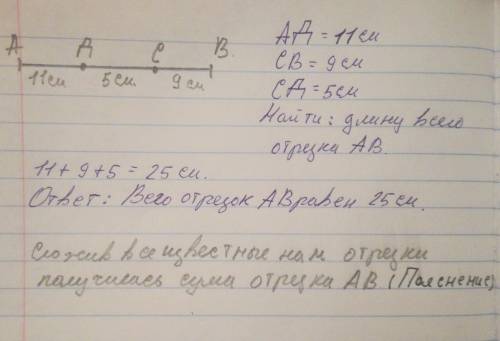 А Д С В
11см 5см. 9см
АД = 11см
СВ = 9см
СД = 5см
Найти: длину всего
отрезка АВ.
11 + 9 + 5 = 25 см.
Ответ: Всего отрезок АВ равен 25 см.
Сложив все известные нам отрезки
получилась сума отрезка АВ (Пояснение)